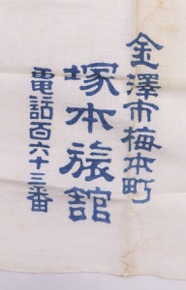 金澤市梅本町
塚本旅舘
電話百六十三番